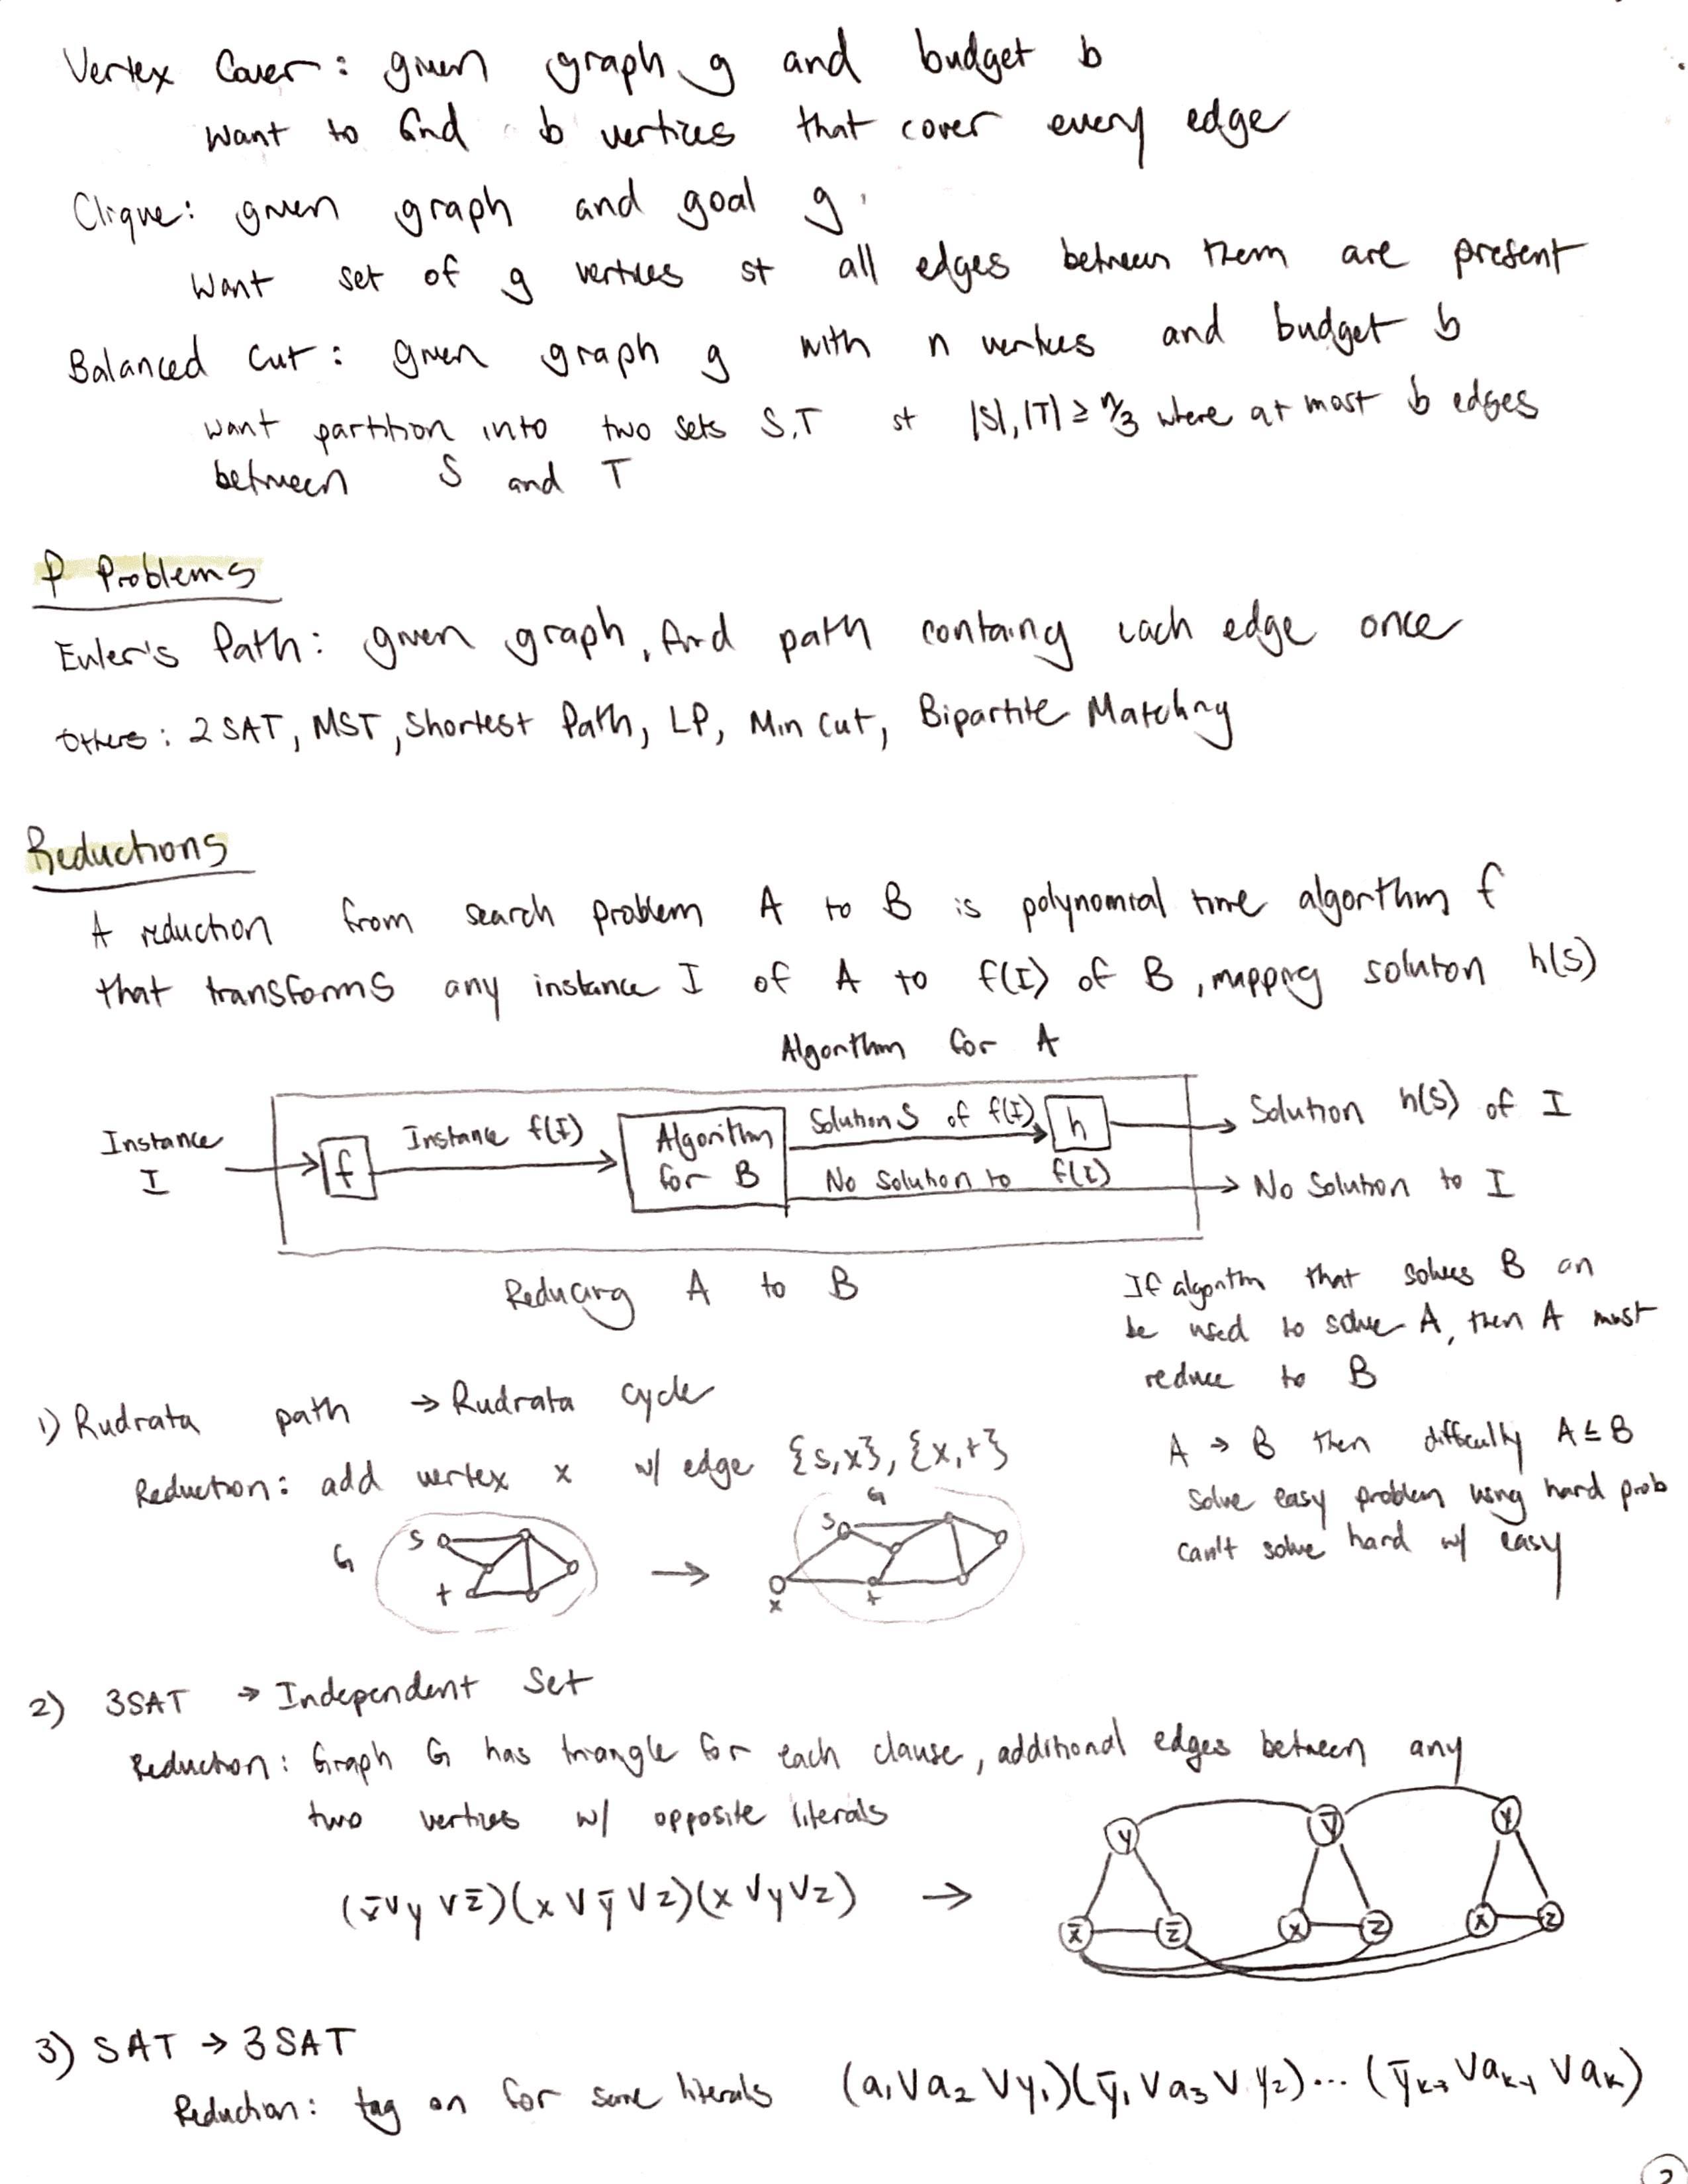 Vertex Cover: given graph g and budget b
want to find b vertices that cover every edge
Clique: given graph and goal g
want set of g vertices st all edges between them are present
Balanced Cut: given graph g with n vertices and budget b
want partition into two sets S,T st |S|,|T| ≥ n/3 where at most b edges
between S and T
P Problems
Euler's Path: given graph, find path containg each edge once
Others: 2SAT, MST, Shortest Path, LP, Min Cut, Bipartite Matching
Reductions
A reduction from search problem A to B is polynomial time algorithm f
that transforms any instance I of A to f(I) of B, mapping solution h(S)
Algorithm for A
Instance
I
f
Instance f(I)
Algorithm
for B
Solution S of f(I)
h
No Solution to f(I)
Solution h(S) of I
No Solution to I
Reducing A to B
If algorithm that solves B can
be used to solve A, then A must
reduce to B
A → B then difficulty A ≤ B
solve easy problem using hard prob
can't solve hard w/ easy
1) Rudrata path → Rudrata cycle
Reduction: add vertex x w/ edge {s,x}, {x,t}
G
s
t
→
G
s
x
t
2) 3SAT → Independent Set
Reduction: Graph G has triangle for each clause, additional edges between any
two vertices w/ opposite literals
(x̄ V y V z̄)(x V ȳ V z)(x V y V z) →
y ȳ y
x̄ z̄ x z x z
3) SAT → 3SAT
Reduction: tag on for some literals (a₁ V a₂ V y₁)(ȳ₁ V a₃ V y₂)... (ȳₖ₋₃ V aₖ₋₁ V aₖ)
2